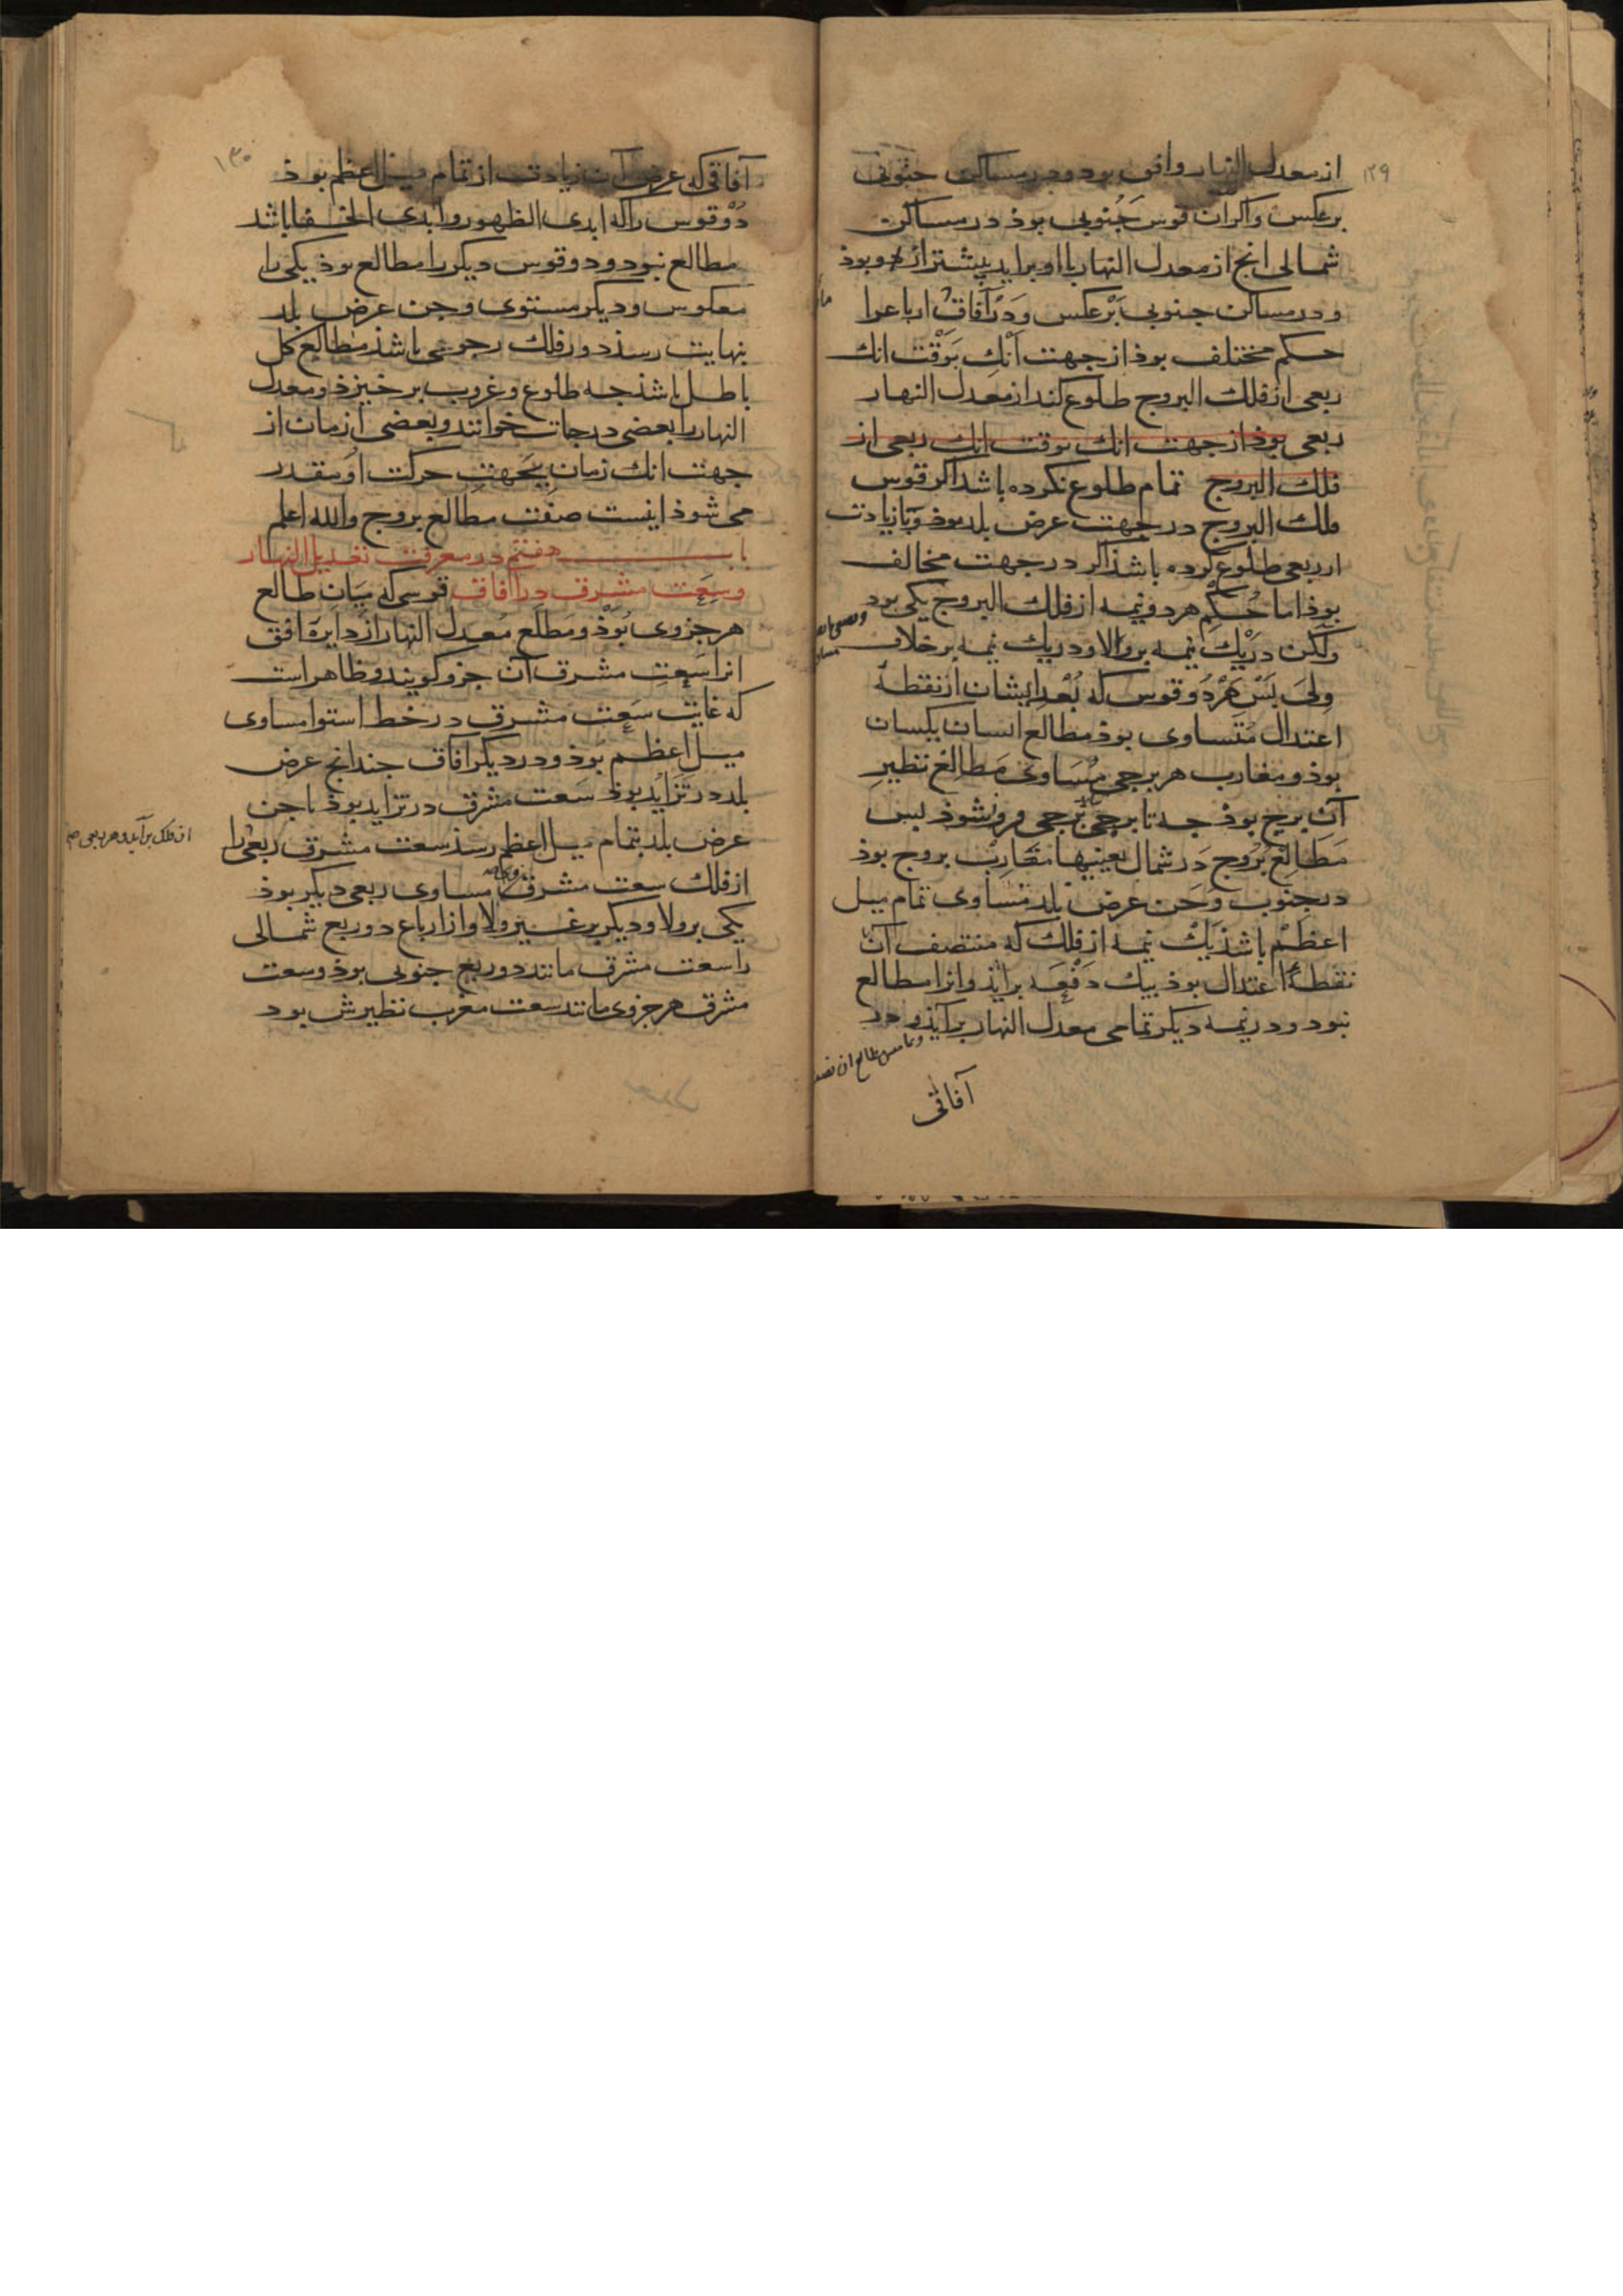 ۱۲۹
از معدل النهار وافی بود و در مساکن جنوبی
برعکس واکر ان قوس جنوبی بوذ در مساکن
شمالی انج از معدل النهار با او براید بیشتر از بوذ
و در مساکن جنوبی برعکس و در آفاق ارباعرا
حکم مختلف بوذ از جهت آنک بوقت انک
ربعی از فلك البروج طلوع کند از معدل النهار
ربعی بوذ از جهت انك بوقت انك ربعی از
فلك البروج تمام طلوع نکرده باشد اکر قوس
فلك البروج در جهت عرض بلد بوذ و با زیادت
از ربعی طلوع کرده باشذ اکر در جهت مخالف
بوذ اما حکم هر دو نیمه از فلك البروج یکی بود
ولکن در یك نیمه بر والا و در یك نیمه بر خلاف
ولی بس هر دو قوس که بعد ایشان از نقطهٔ
اعتدال متساوی بوذ مطالع ایشان یکسان
بوذ و مغارب هر برجی مساوی مطالع نظیر
آن برج بوذ جه تا برجی برجی فرو نشوذ بس
مطالع بروج در شمال بعینها مغارب بروج بوذ
در جنوب و جن عرض بلد مساوی تمام میل
اعظم باشذ یك نیمه از فلك که منتصف آن
نقطهٔ اعتدال بوذ بیك دفعه برایذ و انرا مطالع
نبود و در نیمه دیکر تمامی معدل النهار برآیذ و در
آفاقی
۱۳۰
آفاقی که عرض آن زیادت از تمام میل اعظم بوذ
دو قوس را که ابدی الظهور و ابدی الخفا باشد
مطالع نبود و دو قوس دیکر را مطالع بوذ یکی را
معکوس و دیکر مستوی و جن عرض بلد
بنهایت رسذ دور فلك رحوی باشذ مطالع کل
باطل باشذ جه طلوع و غروب برخیزذ و معدل
النهار را بعضی درجات خوانند و بعضی ازمان از
جهت انك زمان بجهت حرکت او مقدر
می شوذ اینست صفت مطالع بروج والله اعلم
باب هفتم در معرفت تعدیل النهار
وسعت مشرق در آفاق قوسی که میان طالع
هر جزوی بوذ و مطلع معدل النهار از دایرهٔ افق
انرا سعت مشرق آن جزو کویند و ظاهر است
که غایت سعت مشرق در خط استوا مساوی
میل اعظم بوذ و در دیکر افاق جندانج عرض
بلد در تزاید بوذ سعت مشرق در تزاید بوذ تا جن
عرض بلد بتمام میل اعظم رسذ سعت مشرق ربعی را
از فلك برآید و هر ربعی
از فلك سعت مشرق مساوی ربعی دیکر بوذ
یکی بر ولا و دیکر بر غیر ولا و از ارباع دو ربع شمالی
را سعت مشرق مانند دو ربع جنوبی بوذ و سعت
مشرق هر جزوی مانند سعت مغرب نظیرش بود